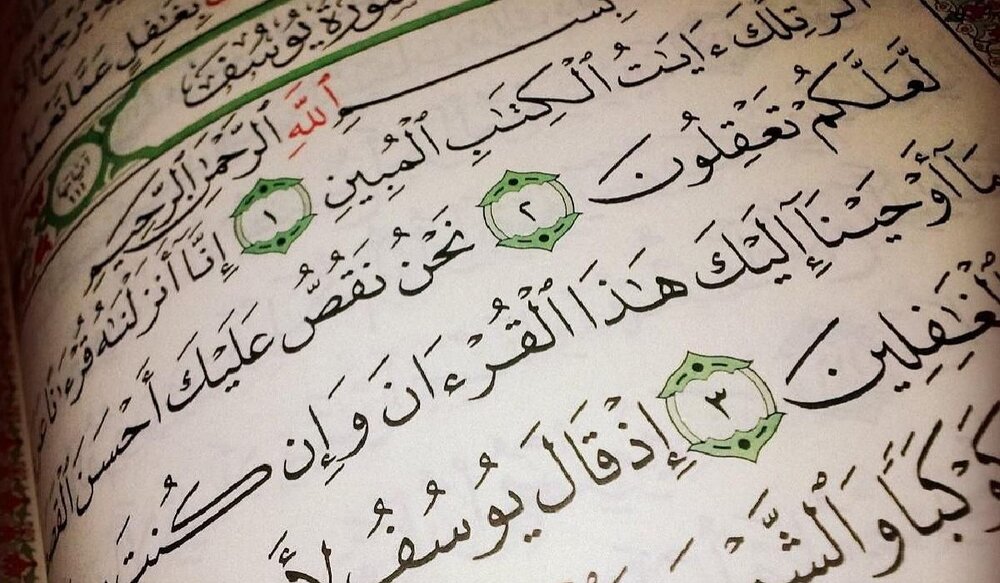 بِغَٰفِلٍ عَمَّا
سُورَةُ يُوسُفَ
بِسْمِ ٱللَّهِ ٱلرَّحْمَٰنِ ٱلرَّحِيمِ
الٓر تِلْكَ ءَايَٰتُ ٱلْكِتَٰبِ ٱلْمُبِينِ ١ إِنَّآ أَنزَلْنَٰهُ قُرْءَٰنًا
لَّعَلَّكُمْ تَعْقِلُونَ ٢ نَحْنُ نَقُصُّ عَلَيْكَ أَحْسَنَ
مَآ أَوْحَيْنَآ إِلَيْكَ هَٰذَا ٱلْقُرْءَانَ وَإِن كُنتَ
ٱلْغَٰفِلِينَ ٣ إِذْ قَالَ يُوسُفُ
كَوْكَبًا وَٱلشَّمْسَ